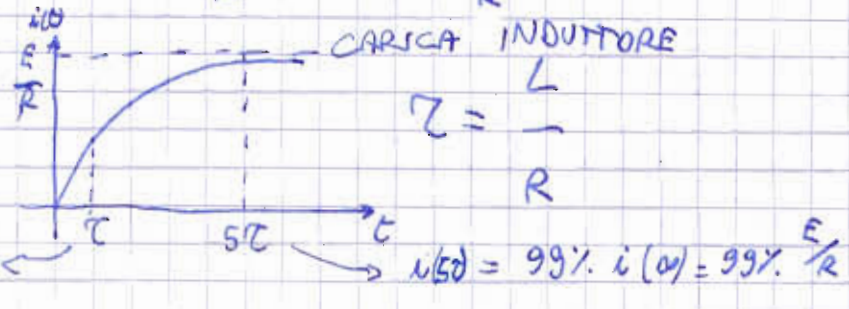 i(t)
E
R
CARICA INDUTTORE
τ = L
R
τ
5τ
t
i(5τ) = 99%. i(∞) = 99%. E/R